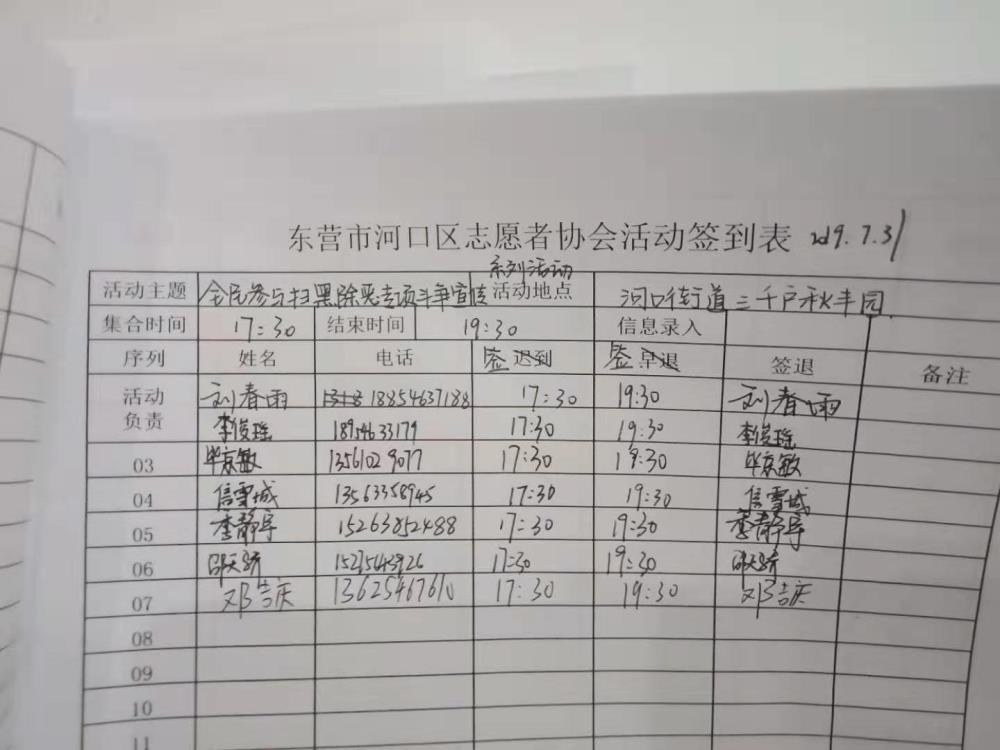 东营市河口区志愿者协会活动签到表 2019.7.31
系列活动
活动主题 全民参与扫黑除恶专项斗争宣传 活动地点 河口街道三千户秋丰园
集合时间 17:30 结束时间 19:30 信息录入
序列 姓名 电话 签 迟到 签 早退 签退 备注
活动负责 刘春雨 18854637188 17:30 19:30 刘春雨
李俊瑶 18954633179 17:30 19:30 李俊瑶
03 毕京敏 13561029077 17:30 19:30 毕京敏
04 信雪城 13563358945 17:30 19:30 信雪城
05 李静 15263852488 17:30 19:30 李静
06 邵天娇 17:30 19:30 邵天娇
07 邓吉庆 13625467610 17:30 19:30 邓吉庆
08
09
10
11